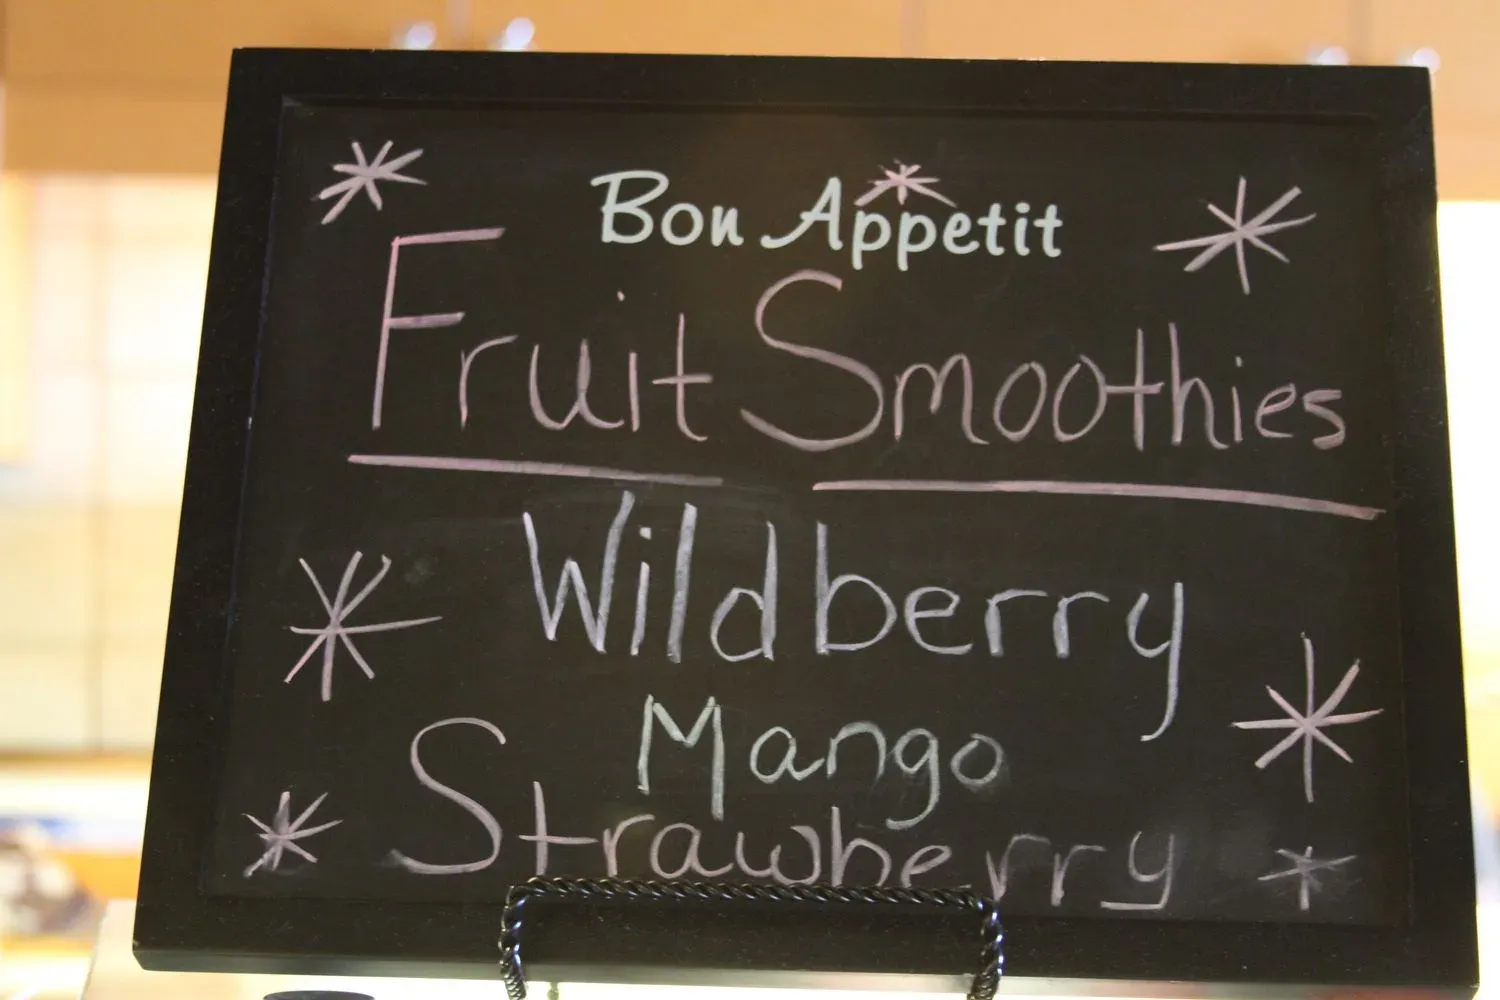 Bon Appetit
Fruit Smoothies
Wildberry
Mango
Strawberry